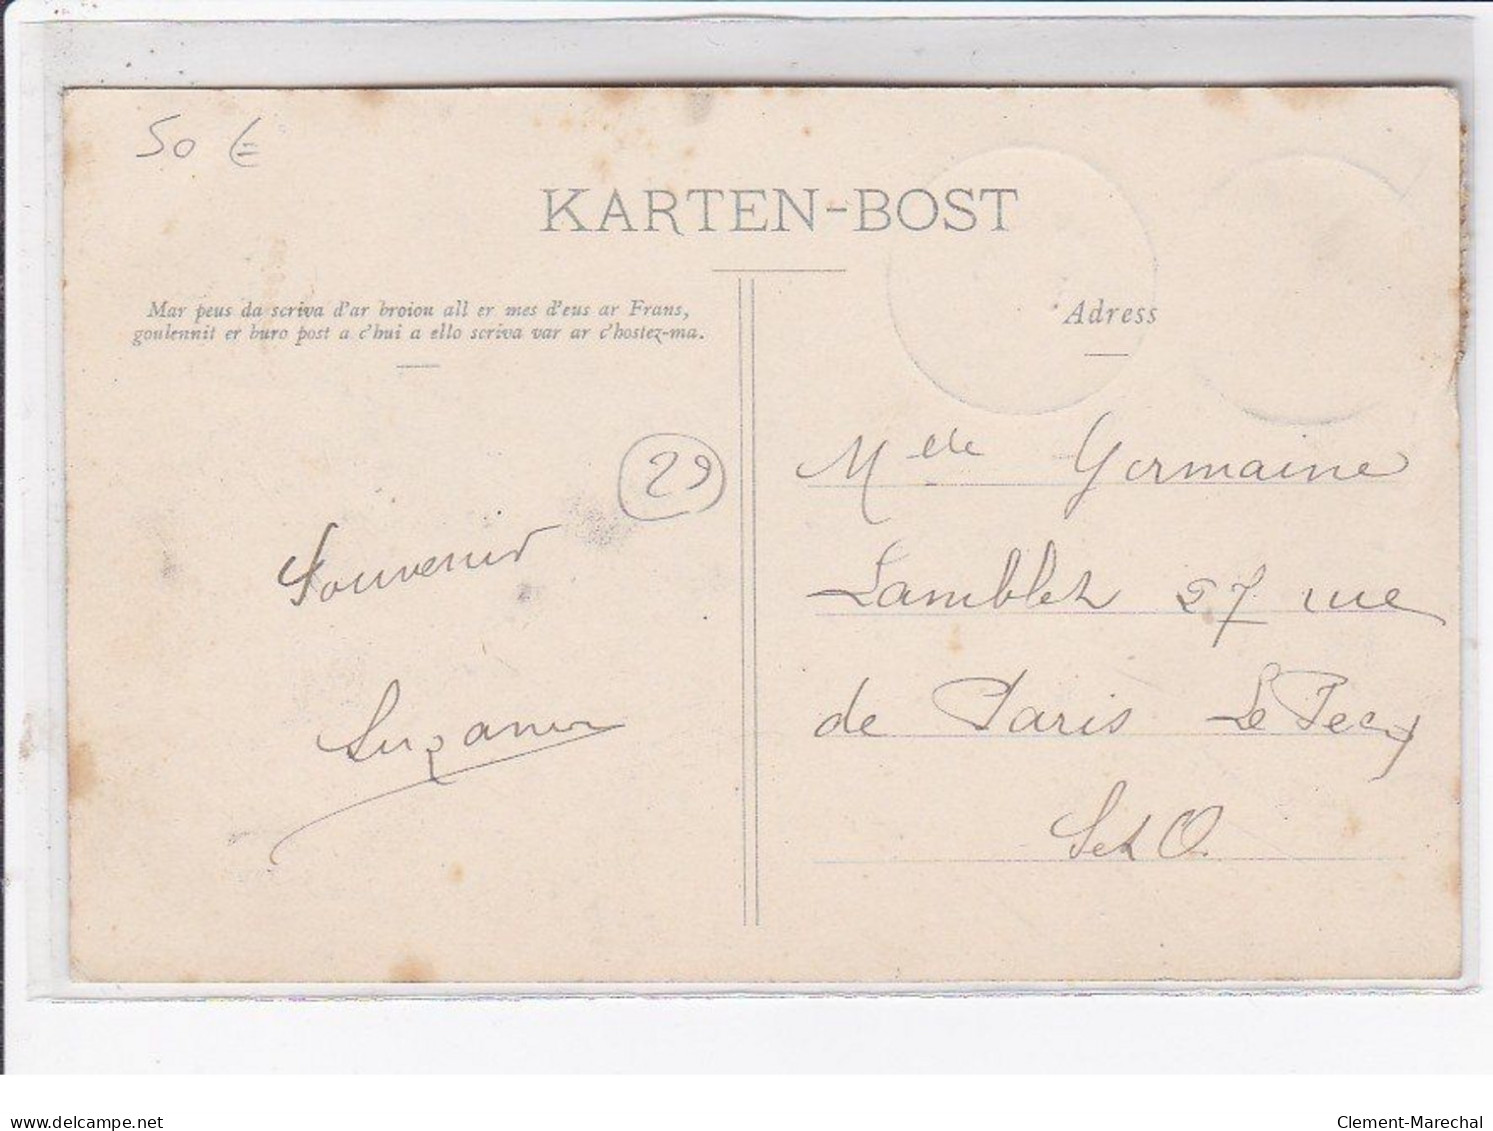 50 €
KARTEN-BOST
Mar peus da scriva d'ar broiou all er mes d'eus ar Frans,
goulennit er buro post a c'hui a ello scriva var ar c'hostez-ma.
Adress
29
Souvenir
Suzanne
Melle Germaine
Lamblet 27 rue
de Paris Le Pecq
S et O.
delcampe.net
Clement-Marechal